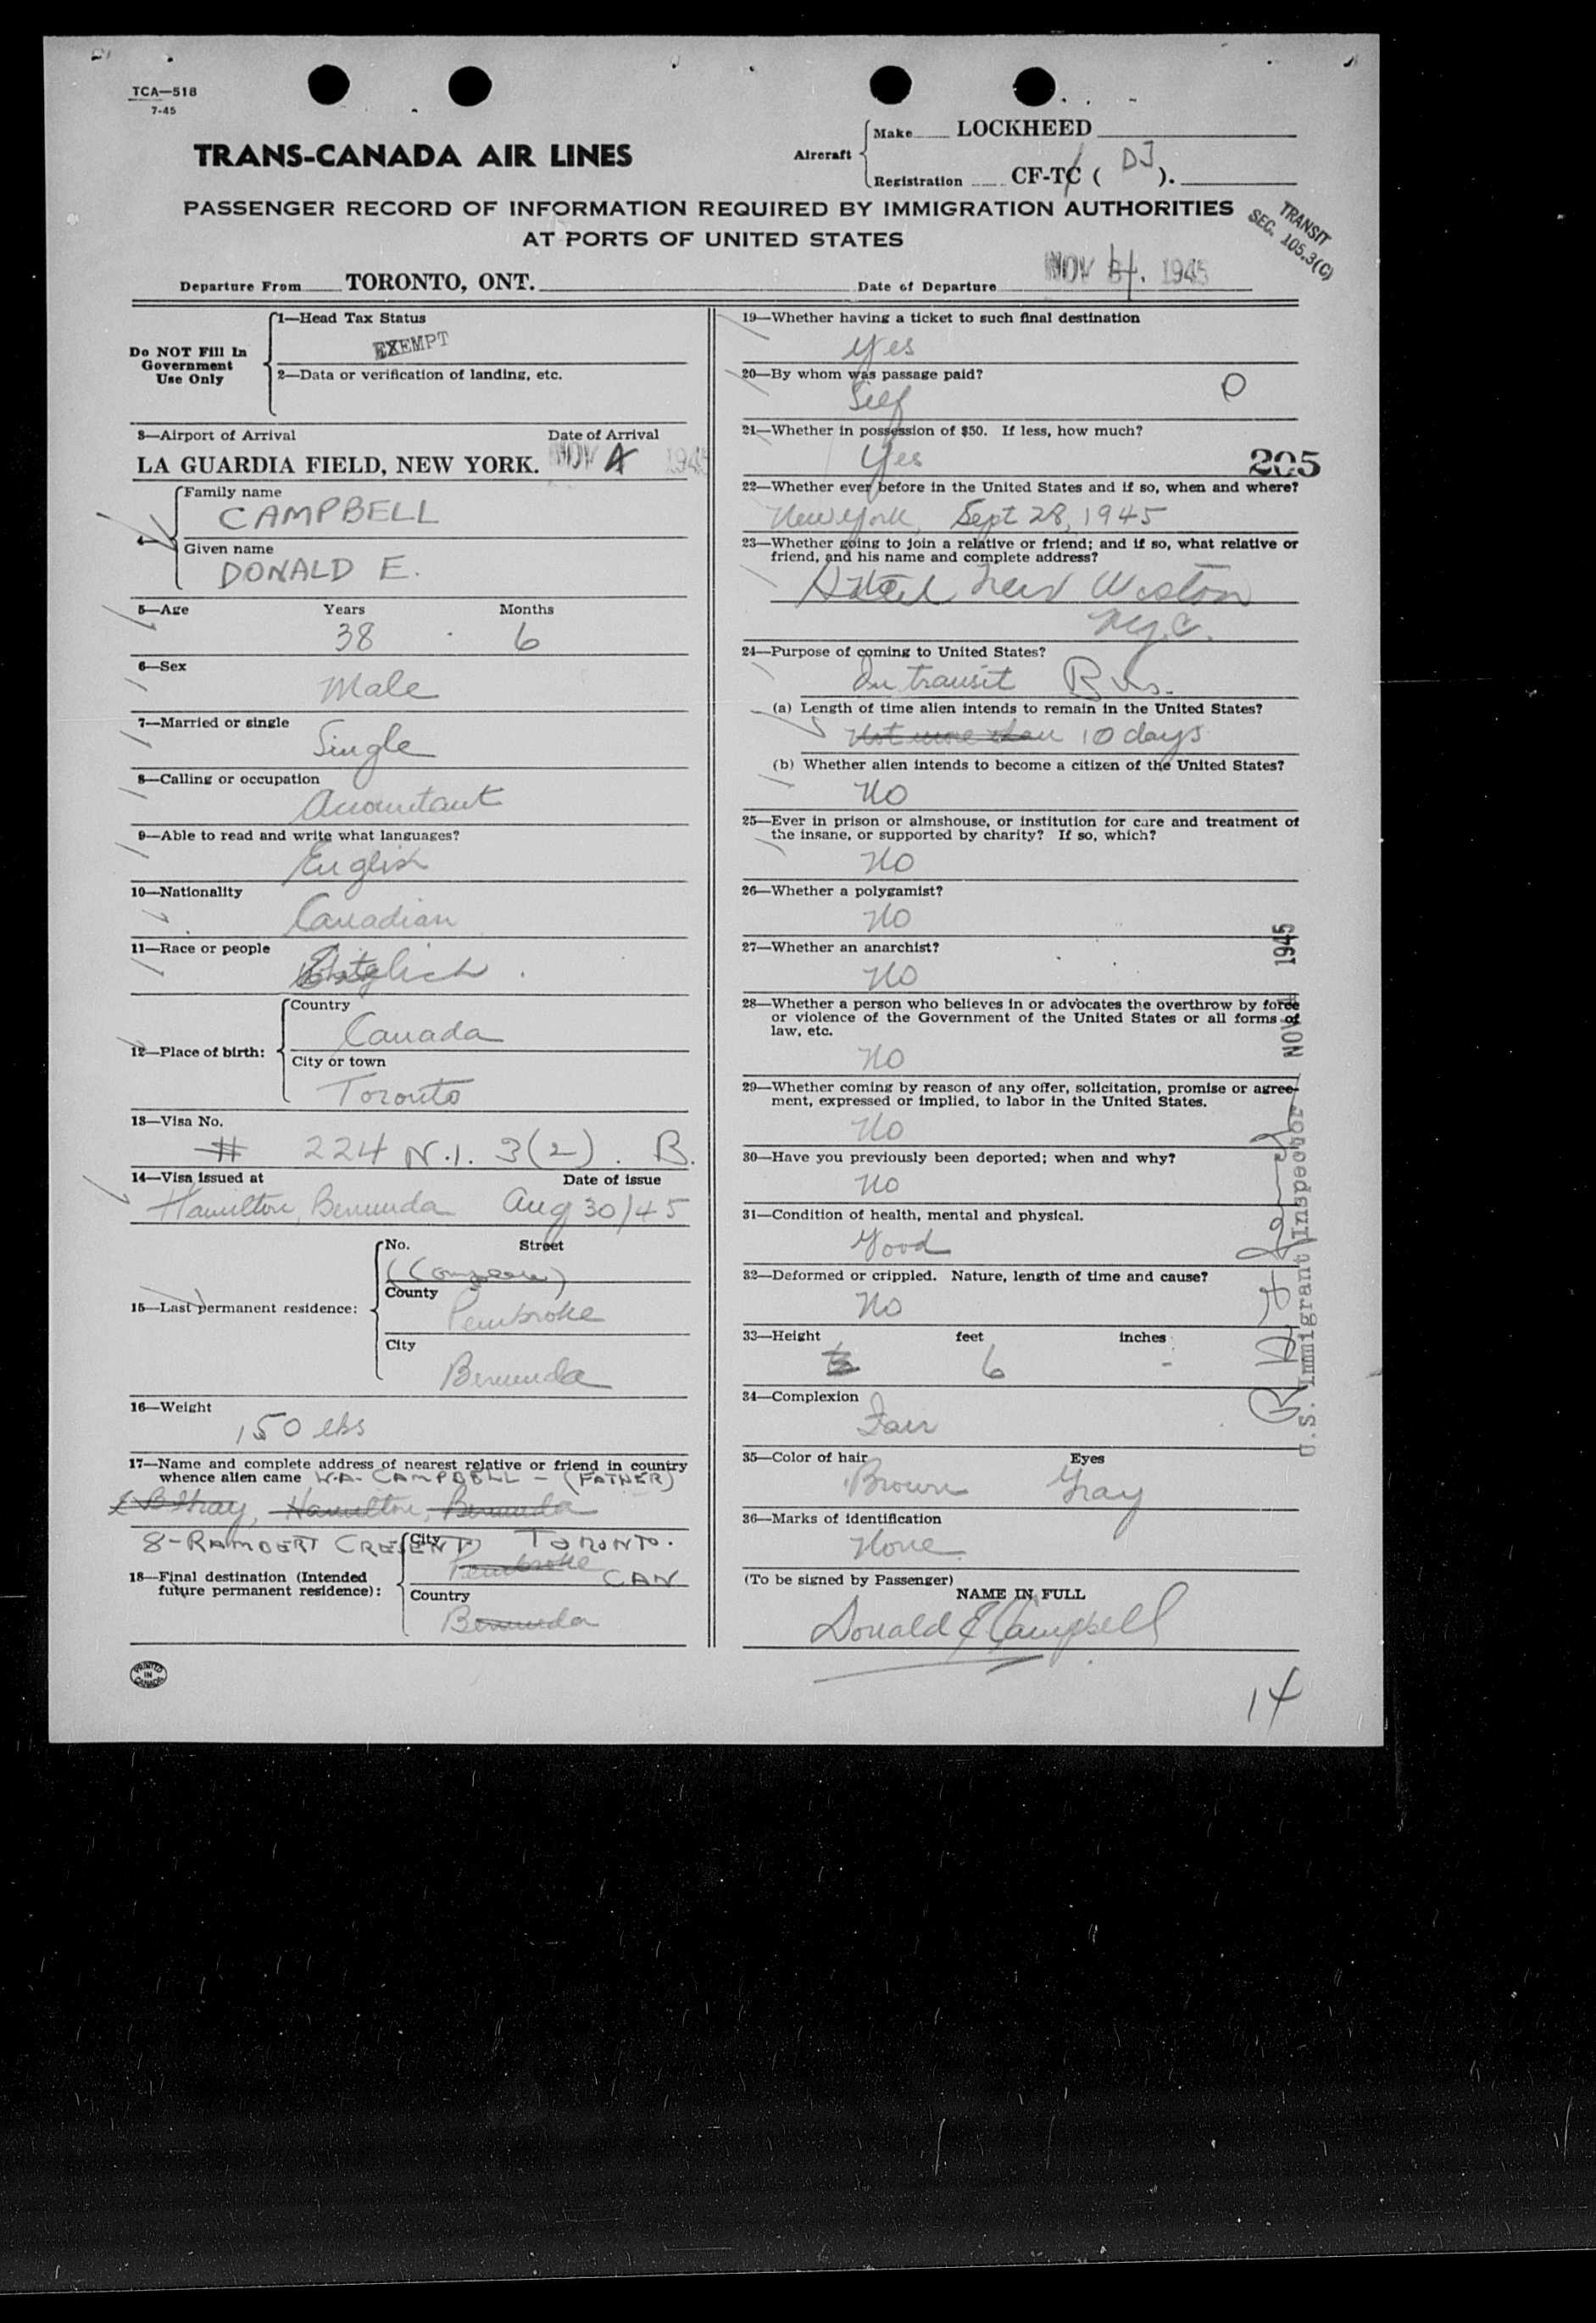 TCA—518
7-45
TRANS-CANADA AIR LINES
Aircraft
Make LOCKHEED
Registration CF-TC ( DJ ).
PASSENGER RECORD OF INFORMATION REQUIRED BY IMMIGRATION AUTHORITIES
AT PORTS OF UNITED STATES
TRANSIT
SEC. 105.3(C)
Departure From TORONTO, ONT. Date of Departure NOV 4. 1945
Do NOT Fill In
Government
Use Only
1—Head Tax Status
EXEMPT
2—Data or verification of landing, etc.
3—Airport of Arrival Date of Arrival
LA GUARDIA FIELD, NEW YORK. NOV 4 1945
4—
Family name
CAMPBELL
Given name
DONALD E.
5—Age Years Months
38 6
6—Sex
Male
7—Married or single
Single
8—Calling or occupation
Accountant
9—Able to read and write what languages?
English
10—Nationality
Canadian
11—Race or people
English
12—Place of birth:
Country
Canada
City or town
Toronto
13—Visa No.
# 224 N.I. 3(2). B.
14—Visa issued at Date of issue
Hamilton, Bermuda Aug 30/45
15—Last permanent residence:
No. Street
County
Pembroke
City
Bermuda
16—Weight
150 lbs
17—Name and complete address of nearest relative or friend in country
whence alien came W.A. CAMPBELL - (FATHER)
Hamilton, Bermuda
8-RAMBERT CRESENT TORONTO.
CAN
18—Final destination (Intended
future permanent residence):
City
Pembroke
Country
Bermuda
PRINTED
IN
CANADA
19—Whether having a ticket to such final destination
Yes
20—By whom was passage paid?
Self
21—Whether in possession of $50. If less, how much?
Yes
205
22—Whether ever before in the United States and if so, when and where?
New York, Sept 28, 1945
23—Whether going to join a relative or friend; and if so, what relative or
friend, and his name and complete address?
Hotel New Weston
N.Y.C.
24—Purpose of coming to United States?
In transit Bus.
(a) Length of time alien intends to remain in the United States?
Not more than 10 days
(b) Whether alien intends to become a citizen of the United States?
No
25—Ever in prison or almshouse, or institution for care and treatment of
the insane, or supported by charity? If so, which?
No
26—Whether a polygamist?
No
27—Whether an anarchist?
No
28—Whether a person who believes in or advocates the overthrow by force
or violence of the Government of the United States or all forms of
law, etc.
No
29—Whether coming by reason of any offer, solicitation, promise or agree-
ment, expressed or implied, to labor in the United States.
No
30—Have you previously been deported; when and why?
No
31—Condition of health, mental and physical.
Good
32—Deformed or crippled. Nature, length of time and cause?
No
33—Height feet inches
6 -
34—Complexion
Fair
35—Color of hair Eyes
Brown Gray
36—Marks of identification
None
(To be signed by Passenger)
NAME IN FULL
Donald E Campbell
U.S. Immigrant Inspector NOV 4 1945
14